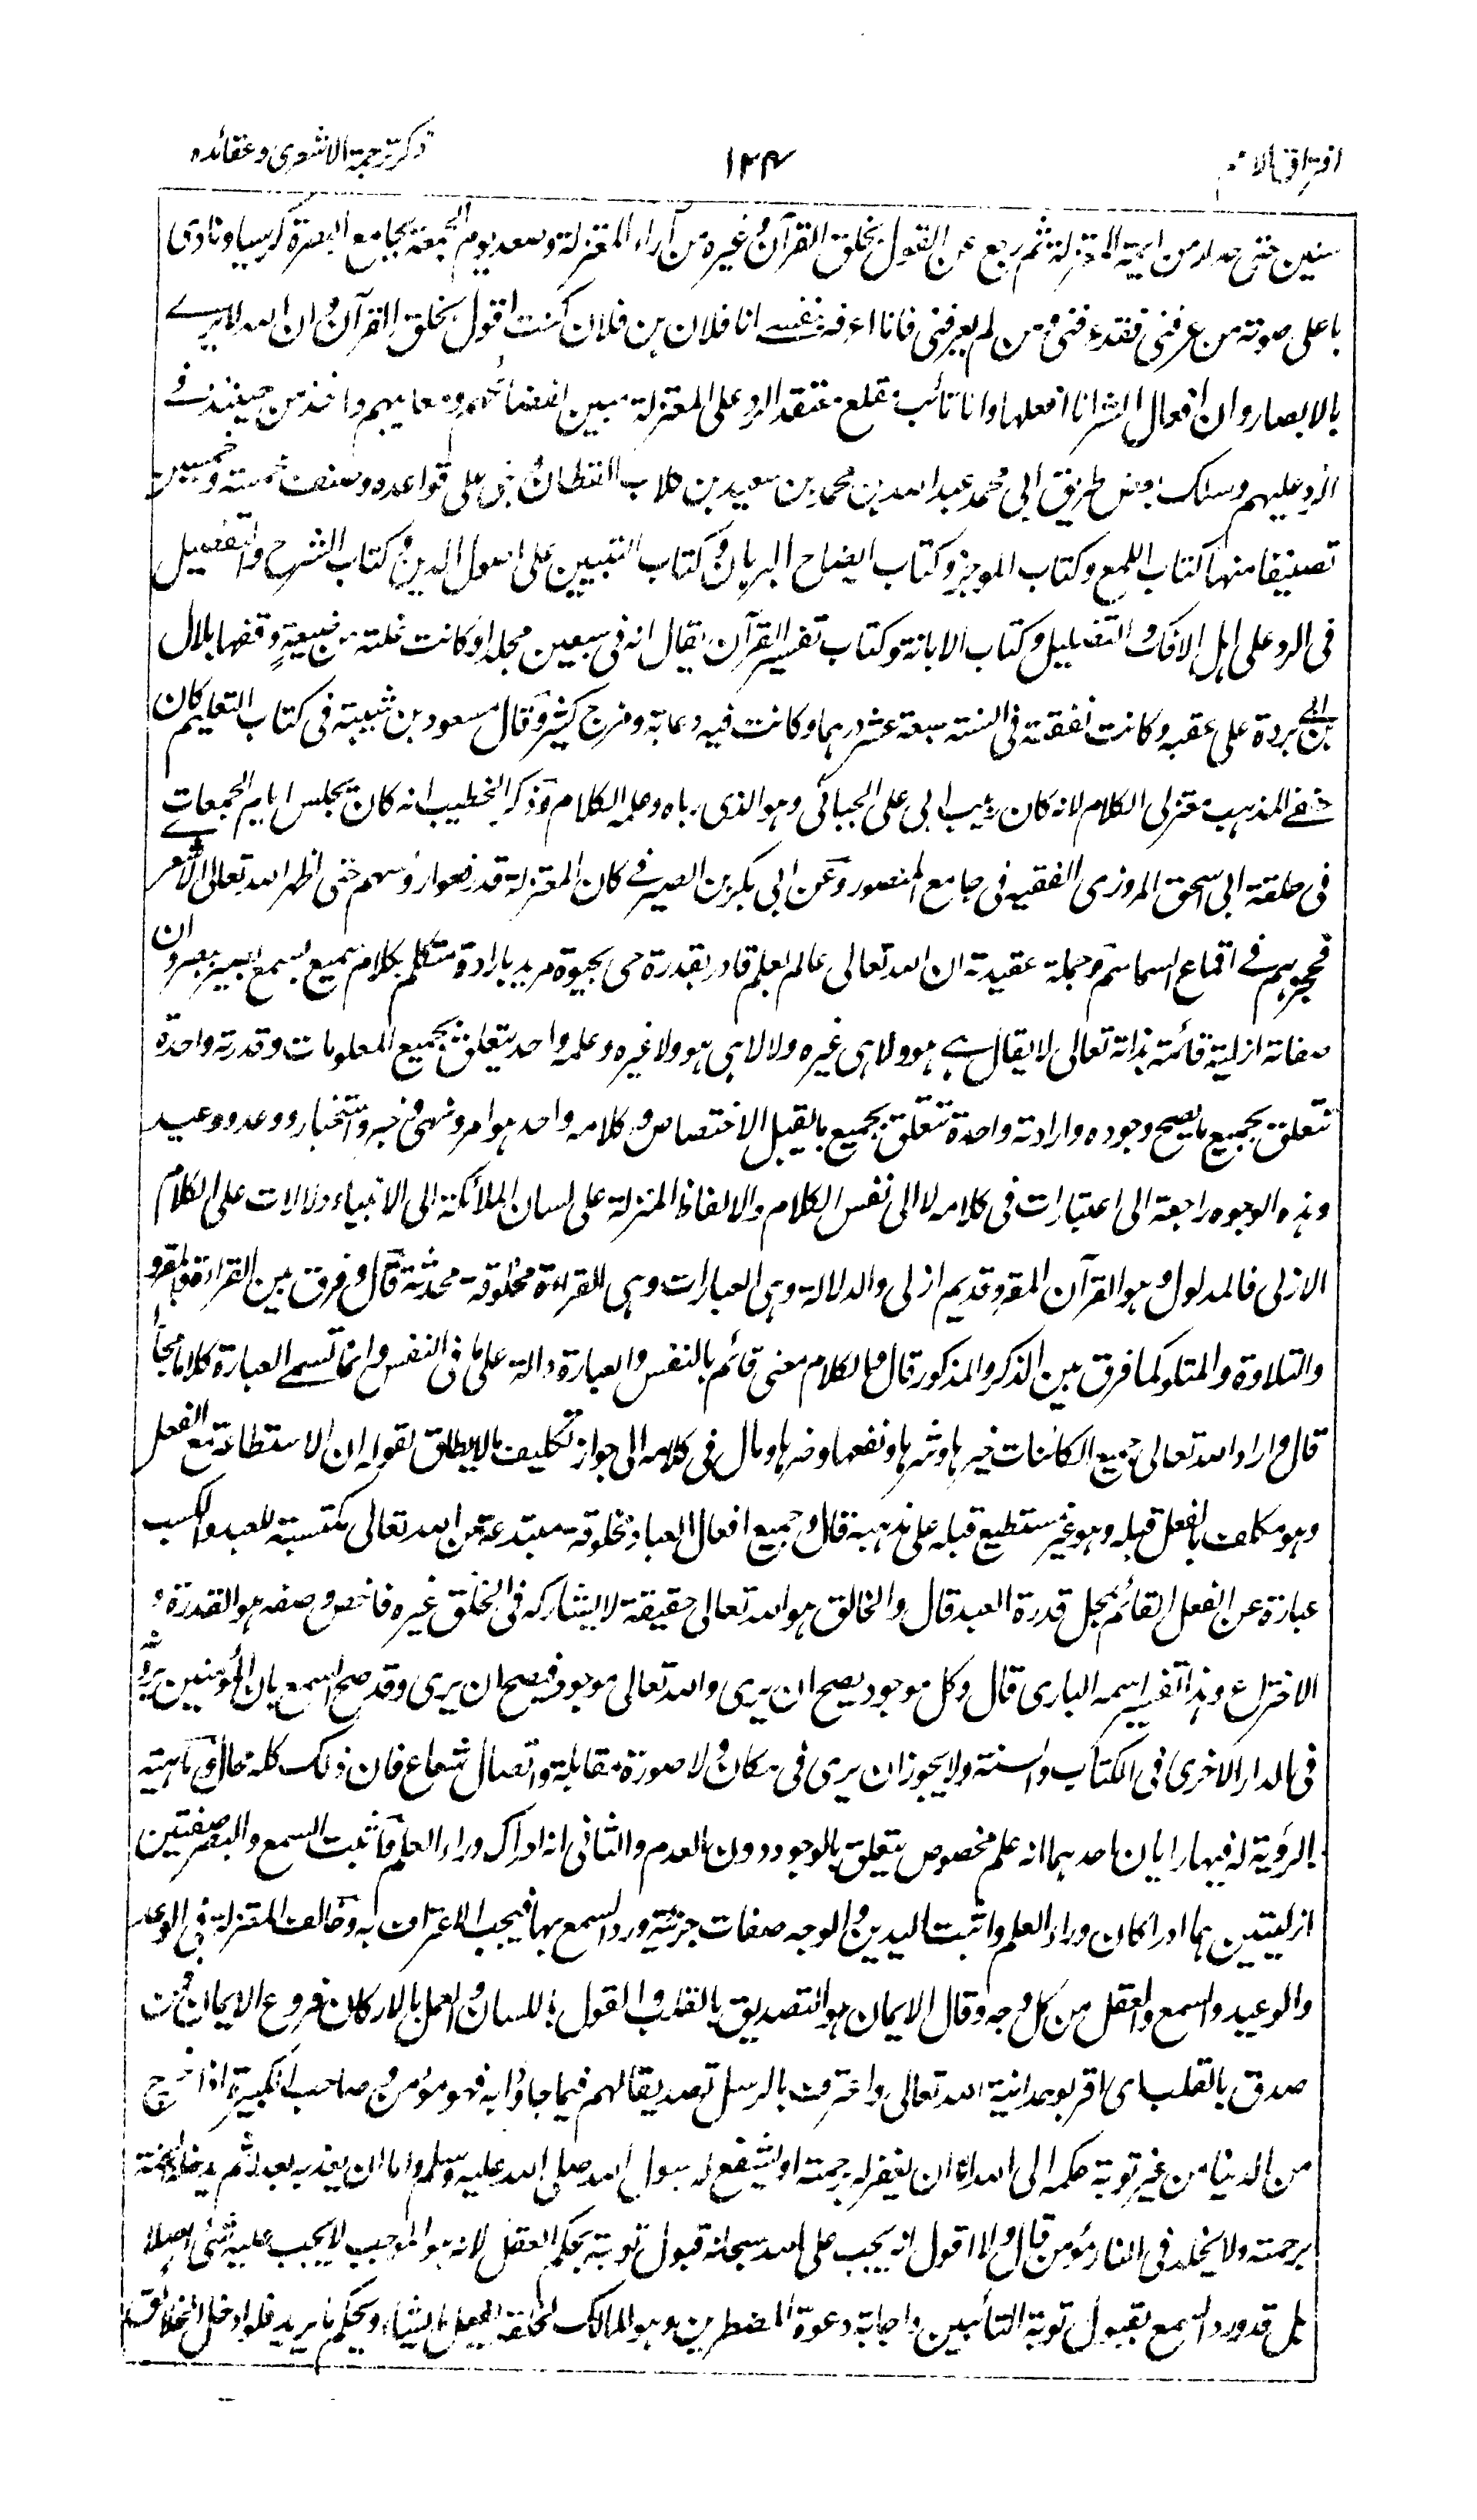 افتراق الامم
۱۳۴
ذكر ترجمة الاشعرى وعقائده
سنين حتى صار من ايمة المعتزلة ثم رجع عن القول بخلق القرآن وغيره من آراء المعتزلة وصعد يوم الجمعة بجامع البصرة كرسيا ونادى
باعلى صوته من عرفنى فقد عرفنى ومن لم يعرفنى فانا اعرفه بنفسے انا فلان بن فلان كنت اقول بخلق القرآن وان الله لا يرے
بالابصار وان افعال الشر انا افعلها وانا تائب مقلع معتقد الرد على المعتزلة مبين لفضائحهم ومعايبهم واخذ من حينئذ فے
الرد عليهم وسلك بعض طريق ابى محمد عبد الله بن محمد بن سعيد بن كلاب القطان وبنى على قواعده وصنف خمسة وخمسين
تصنيفا منها كتاب اللمع وكتاب الموجز وكتاب ايضاح البرهان وكتاب التبيين على اصول الدين وكتاب الشرح والتفصيل
فى الرد على اهل الافك والتضليل وكتاب الابانة وكتاب تفسير القرآن يقال انه فى سبعين مجلدا وكانت غلته من ضيعة وقفها بلال
بن ابى بردة على عقبه وكانت نفقته فى السنة سبعة عشر درهما وكانت فيه دعابة ومزح كثير وقال مسعود بن شيبة فى كتاب التعليم كان
حنفے المذهب معتزلى الكلام لانه كان ربيب ابى على الجبائى وهو الذى رباه وعلمه الكلام وذكر الخطيب انه كان يجلس ايام الجمعات
فى حلقة ابى اسحق المروزى الفقيه فى جامع المنصور وعن ابى بكر بن الصيرفے كان المعتزلة قد رفعوا رؤسهم حتى اظهر الله تعالى الاشعرے
فحجرهم فے اقماع السماسم وجملة عقيدته ان الله تعالى عالم بعلم قادر بقدرة حى بحيوة مريد بارادة متكلم بكلام سميع بسمع بصير ببصر وان
صفاته ازلية قائمة بذاته تعالى لا يقال هے هو ولا هى غيره ولا لا هى هو ولا غيره وعلمه واحد يتعلق بجميع المعلومات وقدرته واحدة
تتعلق بجميع ما يصح وجوده وارادته واحدة تتعلق بجميع ما يقبل الاختصاص وكلامه واحد هو امر ونهى وخبر واستخبار ووعد ووعيد
وهذه الوجوه راجعة الى اعتبارات فى كلامه لا الى نفس الكلام والالفاظ المنزلة على لسان الملائكة الى الانبياء دلالات على الكلام
الازلى فالمدلول وهو القرآن المقرو قديم ازلى والدلالة وهى العبارات وهى القراءة مخلوقة محدثة قال وفرق بين القراءة والمقرو
والتلاوة والمتلو كما فرق بين الذكر والمذكور قال والكلام معنى قائم بالنفس والعبارة دالة على ما فى النفس وانما تسمے العبارة كلاما مجازا
قال واراد الله تعالى جميع الكائنات خيرها وشرها ونفعها وضرها ومال فى كلامه الى جواز تكليف ما لا يطاق لقوله ان الاستطاعة مع الفعل
وهو مكلف بالفعل قبله وهو غير مستطيع قبله على مذهبه قال وجميع افعال العباد مخلوقة مبتدعة من الله تعالى مكتسبة للعبد والكسب
عبارة عن الفعل القائم بمحل قدرة العبد قال والخالق هو الله تعالى حقيقة لا يشاركه فى الخلق غيره فاخص وصفه هو القدرة و
الاختراع وهذا تفسير اسمه البارى قال وكل موجود يصح ان يرى والله تعالى موجود فيصح ان يرى وقد صح السمع بان المؤمنين يرونه
فى الدار الاخرى فى الكتاب والسنة ولا يجوز ان يرى فى مكان ولا صورة مقابلة واتصال شعاع فان ذلك كله محال وماهية
الرؤية له فيها رايان احدهما انه علم مخصوص يتعلق بالوجود دون العدم والثانى انه ادراك وراء العلم واثبت السمع والبصر صفتين
ازليتين هما ادراكان وراء العلم واثبت اليدين والوجه صفات خبرية ورد السمع بها فيجب الاعتراف به وخالف المعتزلة فى الوعد
والوعيد والسمع والعقل من كل وجه وقال الايمان هو التصديق بالقلب والقول باللسان والعمل بالاركان فروع الايمان فمن
صدق بالقلب اى اقر بوحدانية الله تعالى واعترف بالرسل تصديقا لهم فيما جاؤا به فهو مؤمن وصاحب الكبيرة اذا خرج
من الدنيا من غير توبة حكمه الى الله اما ان يغفر له برحمته او يشفع له رسول الله صلى الله عليه وسلم واما ان يعذبه بعدله ثم يدخله الجنة
برحمته ولا يخلد فى النار مؤمن قال ولا اقول انه يجب على الله سبحانه قبول توبته بحكم العقل لانه هو الموجب لا يجب عليه شئ اصلا
بل قد ورد السمع بقبول توبة التائبين واجابة دعوة المضطرين وهو المالك لخلقه يفعل ما يشاء ويحكم ما يريد فلو ادخل الخلائق